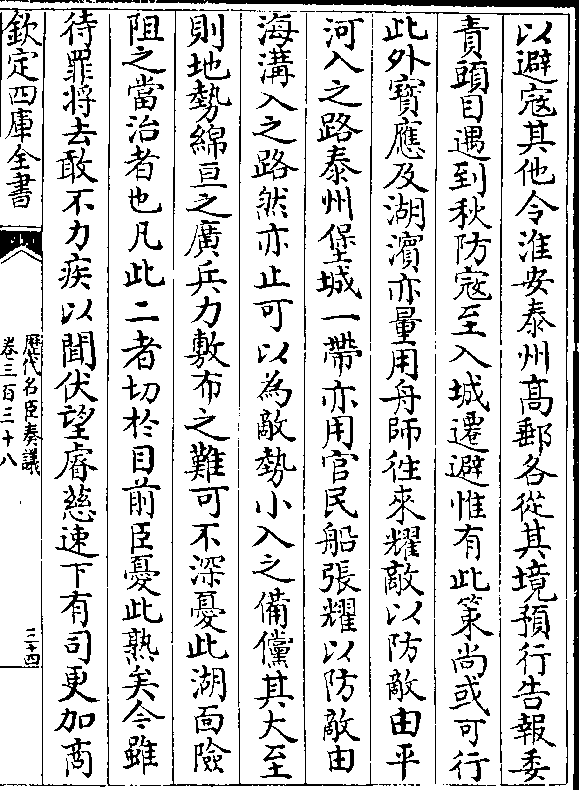 以避寇其他令淮安泰州髙郵各從其境預行告報委
責頭目遇到秋防寇至入城遷避惟有此策尚或可行
此外寶應及湖濱亦量用舟師徃來耀敵以防敵由平
河入之路泰州堡城一帶亦用官民船張耀以防敵由
海溝入之路然亦止可以為敵勢小入之備儻其大至
則地勢綿亘之廣兵力敷布之難可不深憂此湖面險
阻之當治者也凡此二者切於目前臣憂此熟矣今雖
待罪将去敢不力疾以聞伏望睿慈速下有司更加商
欽定四庫全書
歴代名臣奏議
卷三百三十八
三十四